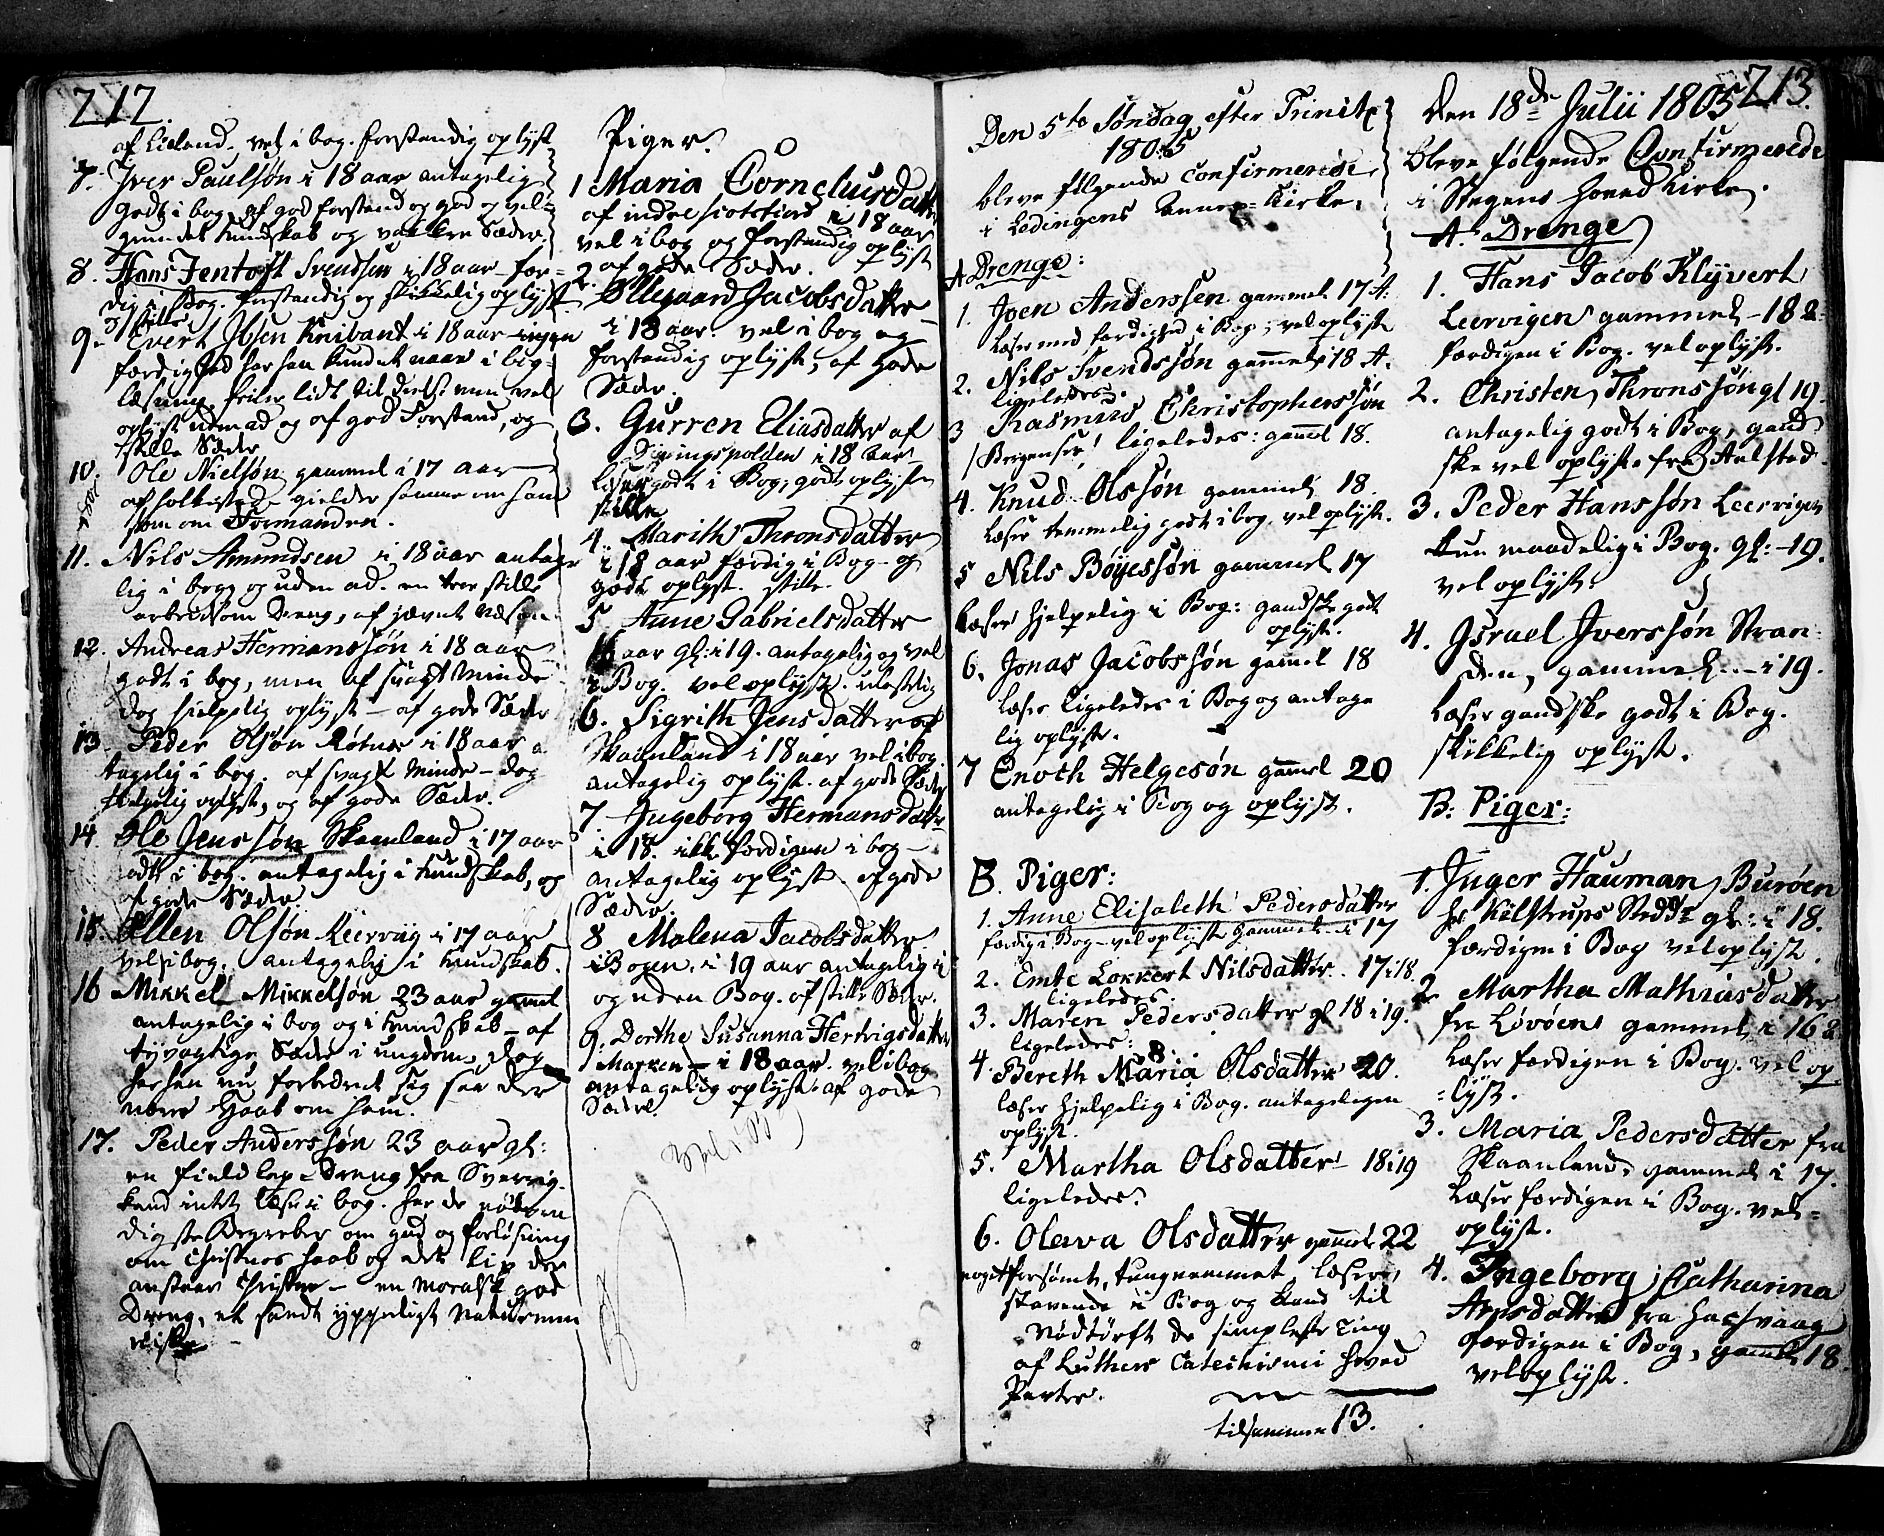 212.
af Lieland. vel i bog. forstandig oplyst
7. Iver Paulsøn i 18 aar antagelig
godt i bog, af god forstand og god og vel-
grundet kundskab og vakkre Sæder.
8. Hans Jentoft Svendsen i 18 aar fær-
dig i Bog. forstandig og skikkelig oplyst
stille
9. Evert Ibsen Knibant i 18 aar ingen
færdighed har han kundet naae i bog-
læsning, feiler lidt til deels. men vel
oplyst udenad og af god Forstand, og
stille Sæder
10. Ole Nielsøn gammel i 17 aar
af gielder samme om ham
som om Formanden.
11. Nils Amundsen i 18 aar antage
lig i bog og uden ad. en troe stille
arbeidsom Dreng, af jævnt Væsen
12. Andreas Hermanssøn i 18 aar
godt i bog, men af svagt Minde
dog hielpelig oplyst – af gode Sæder
13. Peder Olsøn Røtnes i 18 aar a
tagelig i bog. af svagt Minde – dog
hielpelig oplyst, og af gode Sæder.
14. Ole Jenssøn Skaanland i 17 aar
odt i bog. antagelig i kundskab, og
af gode Sæder.
15. Ellen Olsøn Leerviig i 17 aar
vel i bog. antagelig i kundskab.
16 Mikkel Mikkelsøn 23 aar gamel
antagelig i bog og i kundskab – af
tyvagtige Sæder i ungdom, dog
har han nu forbedret sig saa der
være Haab om ham.
17. Peder Anderssøn 23 aar gl:
en Fieldlap-Dreng fra Sverrig.
kand intet læse i bog. har de nødven
digste Begreber om gud og forløsning
om Christnes haab og det liv der
anstaar Christne – en moralsk god
Dreng, et sandt ypperligt Naturmen
niske
Piger.
1 Maria Cornelius Datt
af indre i 18 aar
vel i bog og forstandig oplyst
af gode Sæder.
2. Ellegaard Jacobsdatter
i 18 aar. vel i bog og
forstandig oplyst, af gode
Sæder.
3. Gurren Eliasdatter af
Dypingspolden i 18 aar
læser godt i Bog, godt oplyst
stille
4. Marith Thronsdatter
i 18 aar færdig i Bog og
godt oplyst. stille.
5 Anne Gabrielsdatter
16 aar gl: i 19. antagelig og vel
i Bog. vel oplyst. ulastelig
6. Sigrith Jensdatter af
Skaanland i 18 aar vel i bog.
antagelig oplyst. af gode Sæder
7 Ingeborg Hermansdatter
i 18. ikke færdigen i bog –
antagelig oplyst af gode
Sæder
8 Malena Jacobsdatter
i Bogen, i 19 aar antagelig i
og uden Bog. af stille Sæder.
9. Dorthe Susanna Hertvigsdatter
i 18 aar. vel i bog
antagelig oplyst. af gode
Sæder
Den 5te Søndag efter Trinit
1805
bleve følgende confirmerede
i Lødingens Annex-Kirke.
A Drenge:
1. Joen Anderssen gammel 17 A.
læser med færdighed i Bog, vel oplyst
2. Nils Svendssøn gammel 18 A.
ligeledes
3 Rasmus Christopherssøn
/Bergenser/ ligeledes: gamel 18.
4. Knud Olssøn gammel 18
Læser temmelig godt i bog. vel oplyst.
5 Nils Bøyessøn gammel 17
Læser hjelpelig i Bog: gandske godt
oplyst.
6. Jonas Jacobssøn gamel 18
læser ligeledes i Bog og antage
lig oplyst.
7 Enoch Helgesøn gamel 20
antagelig i Bog og oplyst.
B. Piger:
1. Anne Elisabeth Pedersdatter
færdig i Bog – vel oplyst gammel i 17
2. Emte Lokkert Nilsdatter. 17 i 18.
ligeledes.
3. Maren Pedersdatter gl 18 i 19.
ligeledes:
4 Bereth Maria Olsdatter 20.
læser hjelpelig i Bog. antageligen
oplyst.
5. Martha Olsdatter 18 i 19
ligeledes.
6. Olava Olsdatter gamel 22
noget forsømt, tungnemmet læser
stavende i Bog og kand til
Nødtørft de simpleste Ting
af Luthers Catechismi Hoved
Parter.
tilsammen 13.
213.
Den 18de Julii 1805
bleve følgende Confirmerede
i Stegens Hoved Kirke.
A. Drenge
1. Hans Jacob Klyvert
Leervigen gammel – 18 a:
færdigen i Bog. vel oplyst.
2. Christen Thronssøn gl 19.
antagelig godt i Bog, gand
ske vel oplyst. fra Aalstad
3. Peder Hanssøn Leervigen
kun maadelig i Bog. gl: – 19.
vel oplyst.
4. Israel Iverssøn Stran-
den, gammel – i 19.
Læser gandske godt i Bog.
skikkelig oplyst.
B: Piger:
1. Inger Hauman Burøen
Hr Kilstrups Stedd: gl: i 18.
færdigen i Bog vel oplyst.
2 Martha Mathiasdatter
fra Løvøen gammel i 16 a
Læser færdigen i Bog. vel op-
:lyst.
3. Maria Pedersdatter fra
Skaanland, gammel i 17.
Læser færdigen i Bog. vel-
oplyst.
4. Ingeborg Catharina
Arnsdatter fra
færdigen i Bog, gamel 18
vel oplyst.